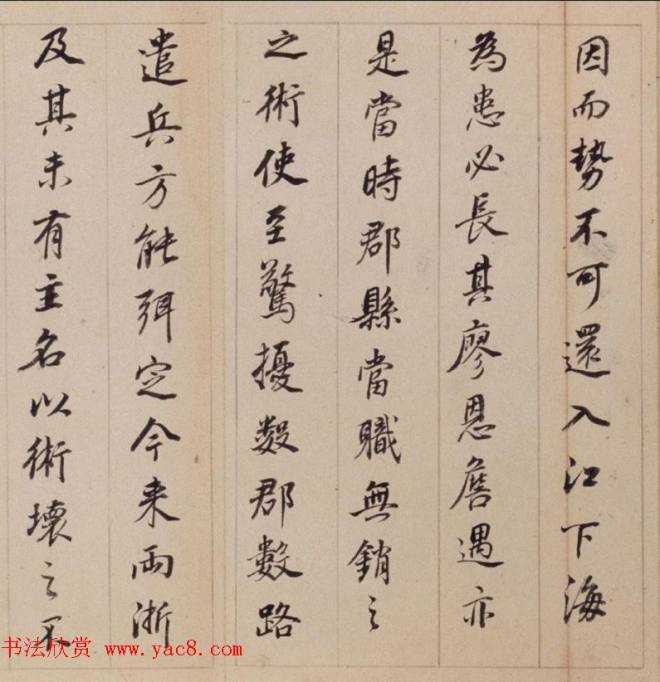 因而勢不可還入江下海
為患必長其廖恩詹遇亦
是當時郡縣當職無銷之
之術使至驚擾数郡數路
遣兵方能弭定今来兩浙
及其未有主名以術壞之不
书法欣赏 www.yac8.com